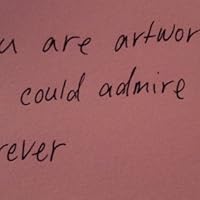 u are artwor
could admire
rever